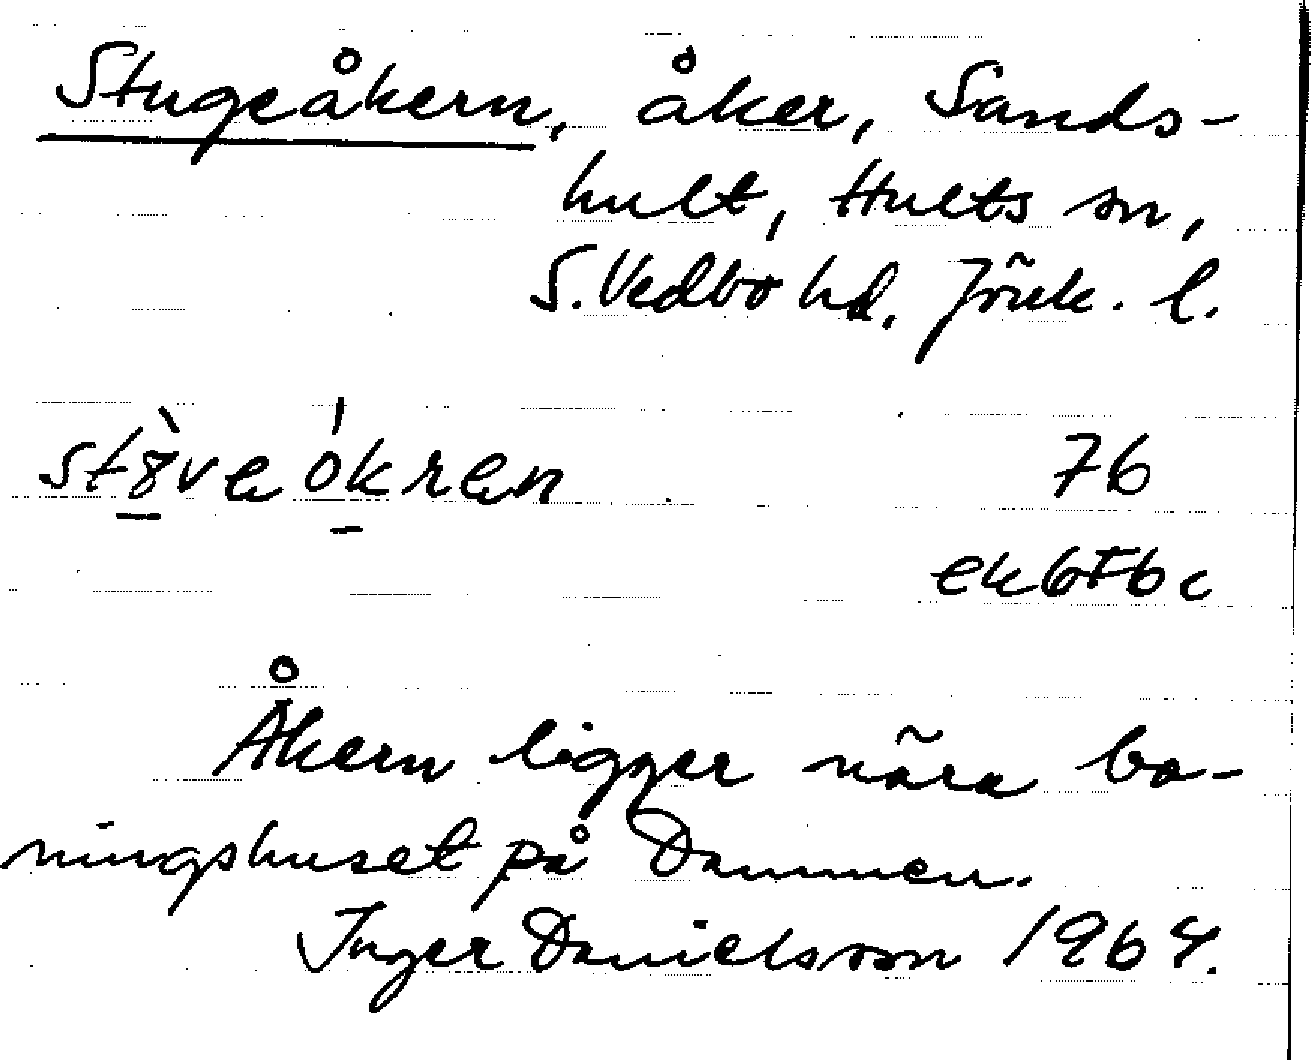 Stugeåkern, åker, Sands-
hult, Hults sn,
S. Vedbo hd. Jönk. l.
76
Åkern ligger nära bo-
ningshuset på Dammen.
Inger Danielsson 1964.